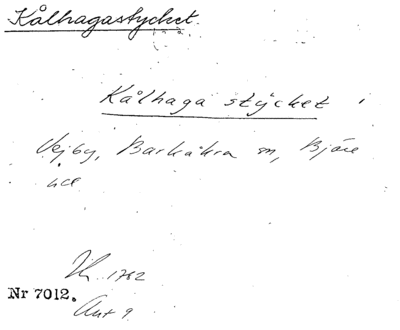 Kålhagastycket.
Kålhaga stycket i
Vejby, Barkåkra sn, Bjäre
hd
1762
Nr 7012.
Akt 9